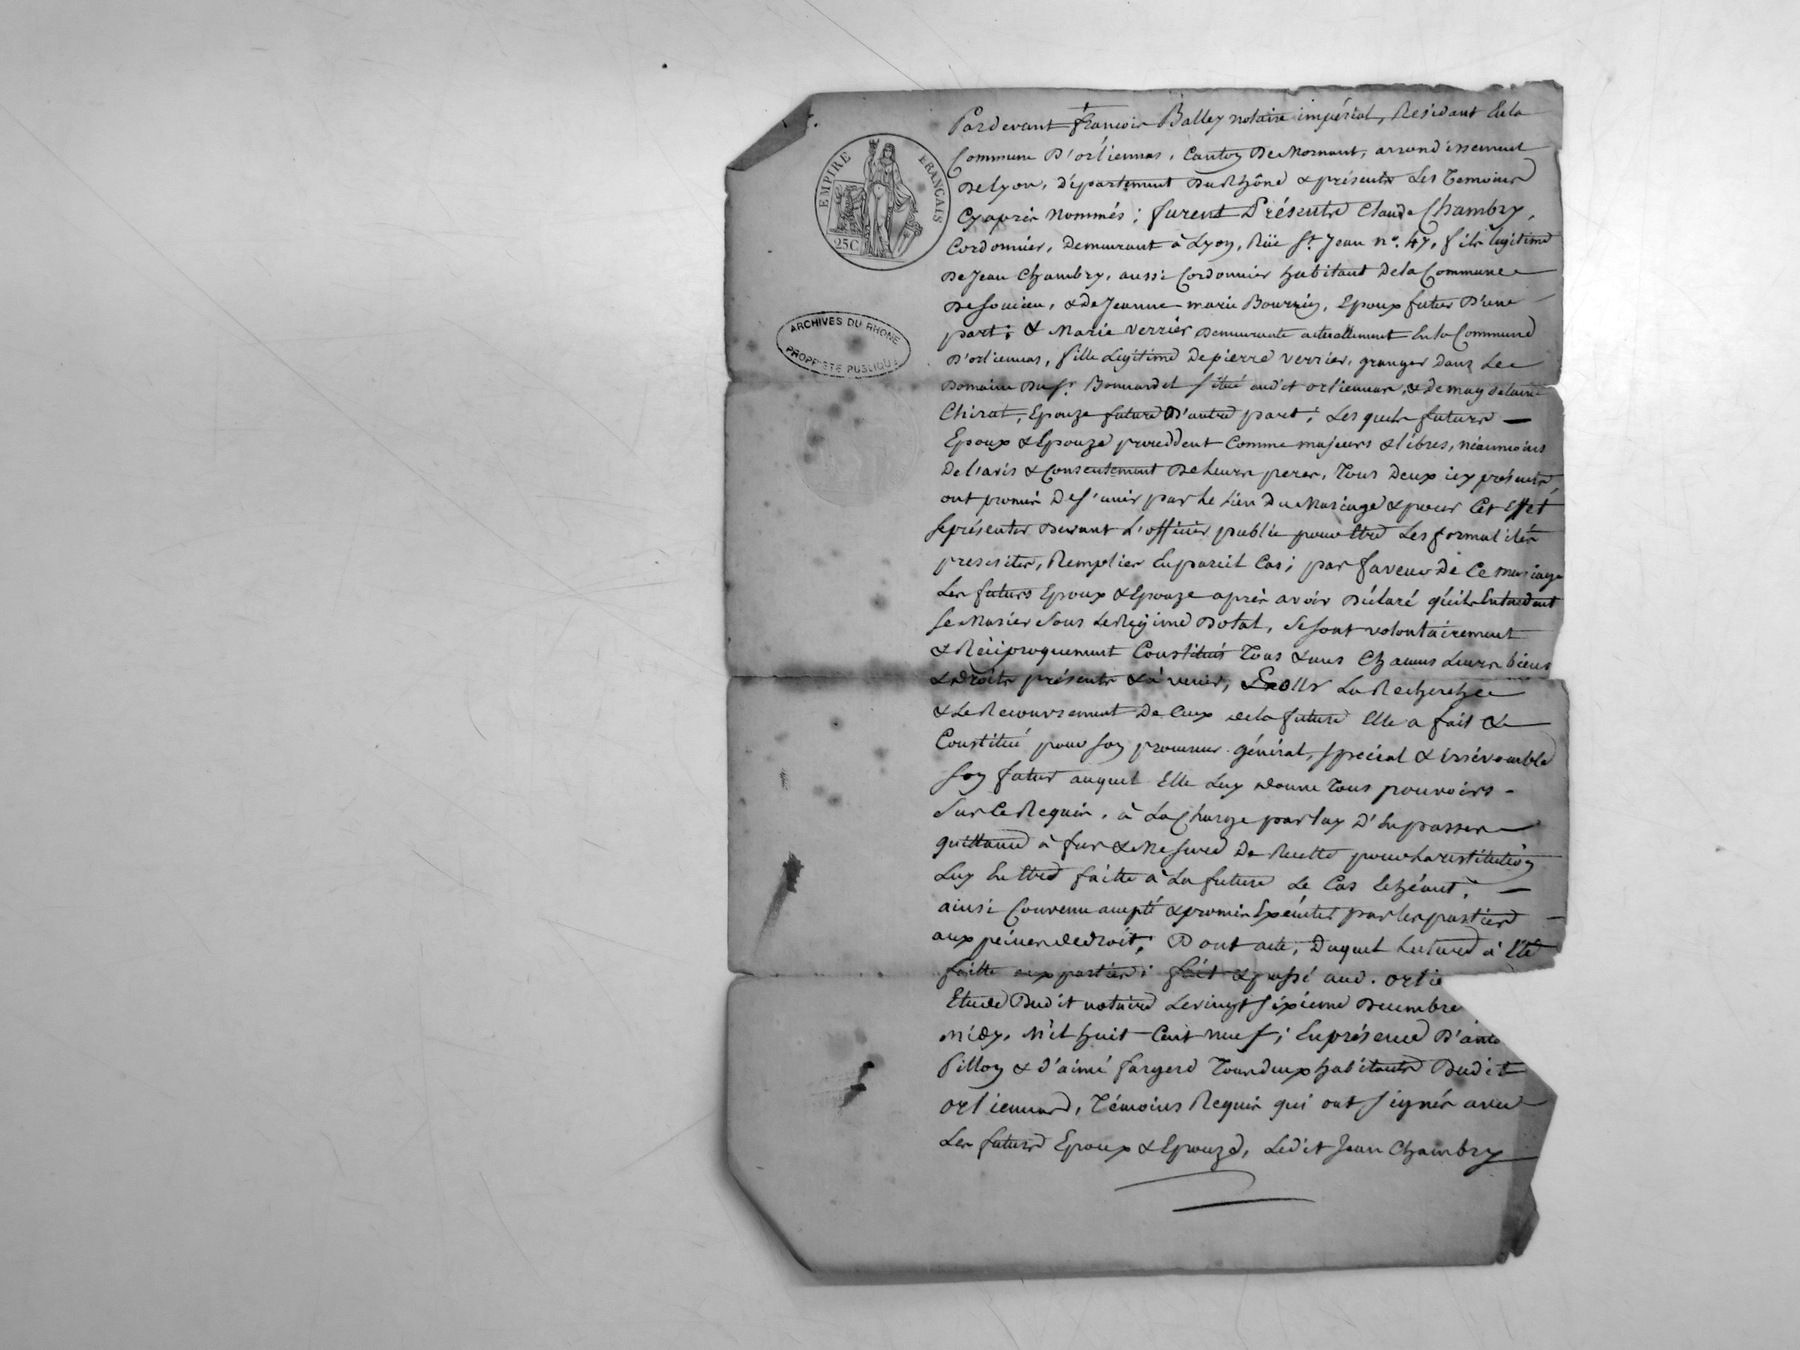 EMPIRE FRANÇAIS
25C
ARCHIVES DU RHONE
PROPRIÉTÉ PUBLIQUE
Pardevant françois Balley notaire impérial, Résidant En la
Commune D'orliennas, Canton De Mornant, arrondissement
De Lyon, département Du Rhône & présents Les Temoins
Cy après Nommés; furent Présents Claude Chambry,
Cordonnier, Demeurant à Lyon, Rüe St Jean no. 47, fils légitime
De Jean Chambry, aussi Cordonnier habitant De la Commune
De Soucieu, & De Jeanne marie Bourrin, Epoux futur D'une
part; & Marie Verrier Demeurante actuellement En la Commune
D'orliennas, fille Légitime De pierre Verrier, granger Dans Le
Domaine Du Sr. Bonnardel Situé audit orliennas, & De
Chirat, Epouze future D'autre part; Les quels futurs
Epoux & Epouze procèddent Comme majeurs & libres, néanmoins
De l'avis & Consentement De Leurs peres, Tous Deux icy présents,
ont promis De S'unir par Le Lien Du Mariage & pour Cet Effet
Se présenter Devant L'officier public pour Etre Les formalités
prescrites, Remplies En pareil Cas; par faveur De Ce mariage
Les futurs Epoux & Epouze après avoir Déclaré qu'ils Entendent
Se Marier Sous Le Régime Dotal, Se sont volontairement
& Réciproquement Constitués Tous & uns Chacuns Leurs biens
& Droits présents & à venir, & pour La Recherche
& Le Recouvrement De Ceux de la future Elle a fait &
Constitué pour Son procureur général, spécial & irrévocable
Son futur auquel Elle Luy Donne Tous pouvoirs
Sur Ce Requis, à La Charge par Luy D'En passer
quittance à fur & Mesure De Recette pour La restitution
Luy En Etre faitte à La future Le Cas Echéant,
ainsi Convenu accepté & promis Exécuter par Les parties
aux peines de Droit, Dont acte, Duquel Lecture à Eté
faitte aux parties; fait & passé aud. orlie
Etude Dudit notaire Le vingt Sixieme Décembre
Midy, Mil huit Cent neuf; En présence D'anto
Pillon & d'aimé fargere Tous deux habitants Dudit
orliennas, Témoins Requis qui ont Signés avec
Les futurs Epoux & Epouze, Ledit Jean Chambry